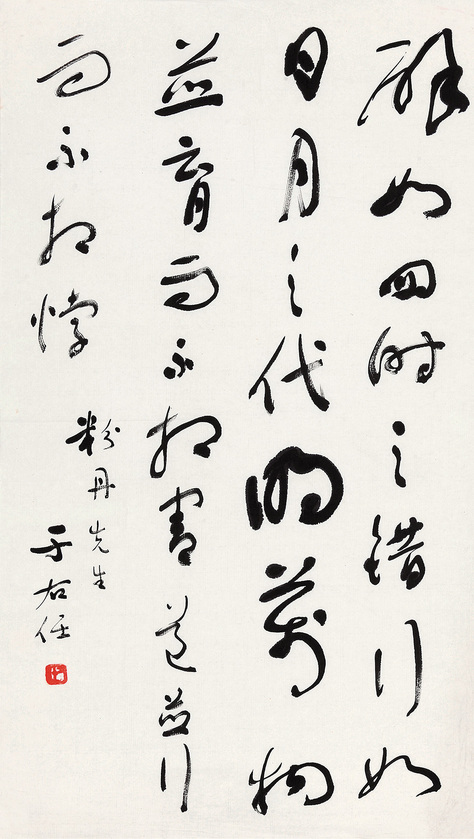 辟如四时之错行如
日月之代明万物
並育而不相害道並行
而不相悖
粉丹先生
于右任